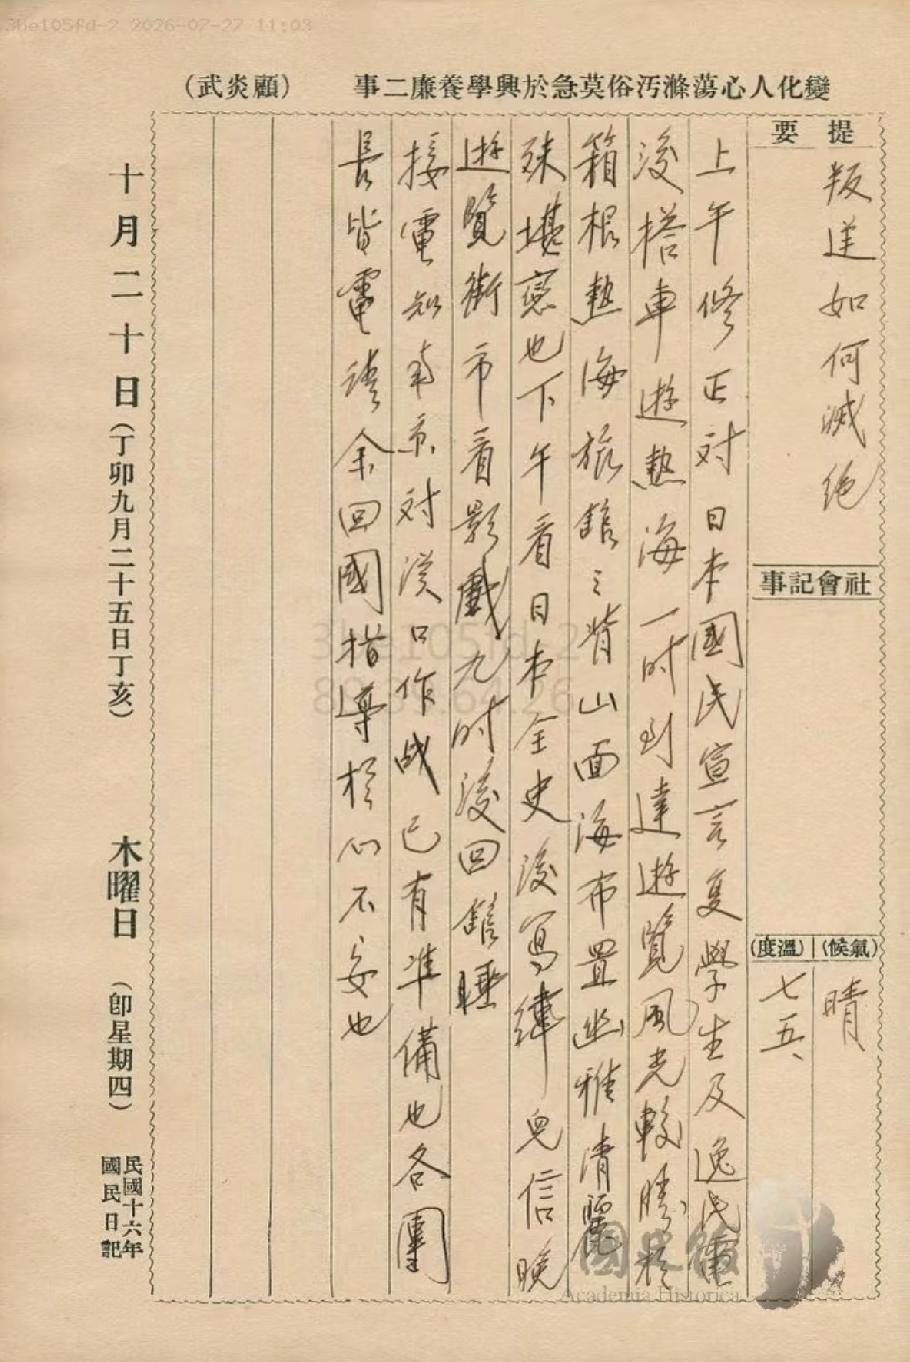 3be105fd-2 2026-07-27 11:03
變化人心蕩滌汚俗莫急於興學養廉二事
(顧炎武)
提要
叛逆如何滅絶
社會記事
(氣候)
晴
(溫度)
七五、
上午修正对日本國民宣言复學生及逸民電
後搭車遊熱海一时到達遊覽風光較勝於
箱根熱海旅館之背山面海布置幽雅清麗
殊堪恋也下午看日本全史後写緯兒信晚
遊覽街市看影戲九时後回館睡
接電知南京対漢口作战已有準備也各團
長皆電請余回國指導於心不安也
十月二十日(丁卯九月二十五日丁亥)
木曜日
(即星期四)
民國十六年
國民日記
3be105fd-2
國史館
Academia Historica